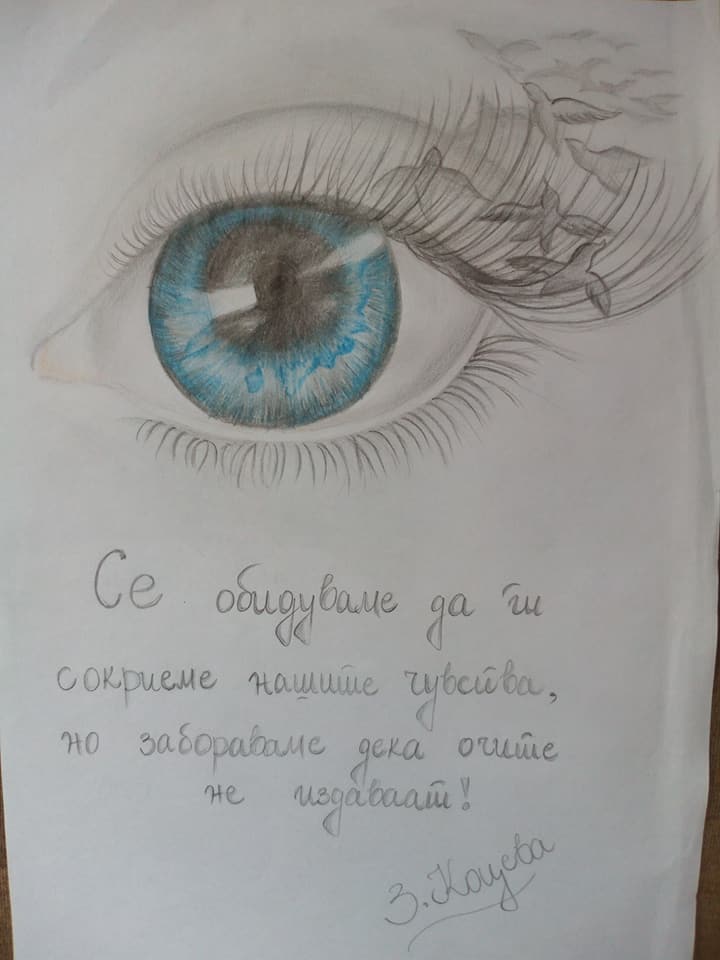 Се обидуваме да ги
сокриеме нашите чувства,
но забораваме дека очите
не издаваат!
З. Коцева